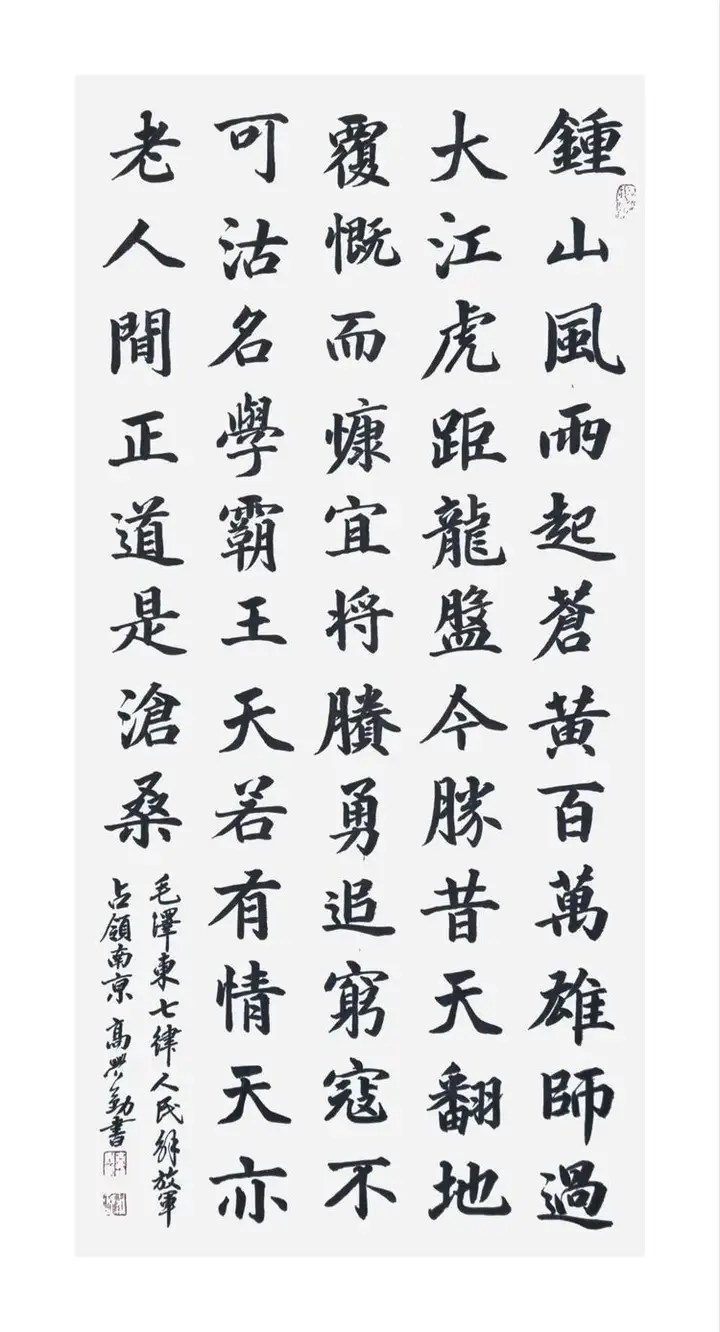 鍾山風雨起蒼黄百萬雄師過
大江虎距龍盤今勝昔天翻地
覆慨而慷宜将賸勇追窮寇不
可沽名學霸王天若有情天亦
老人間正道是滄桑
毛澤東七律人民解放軍
占領南京高興勤書